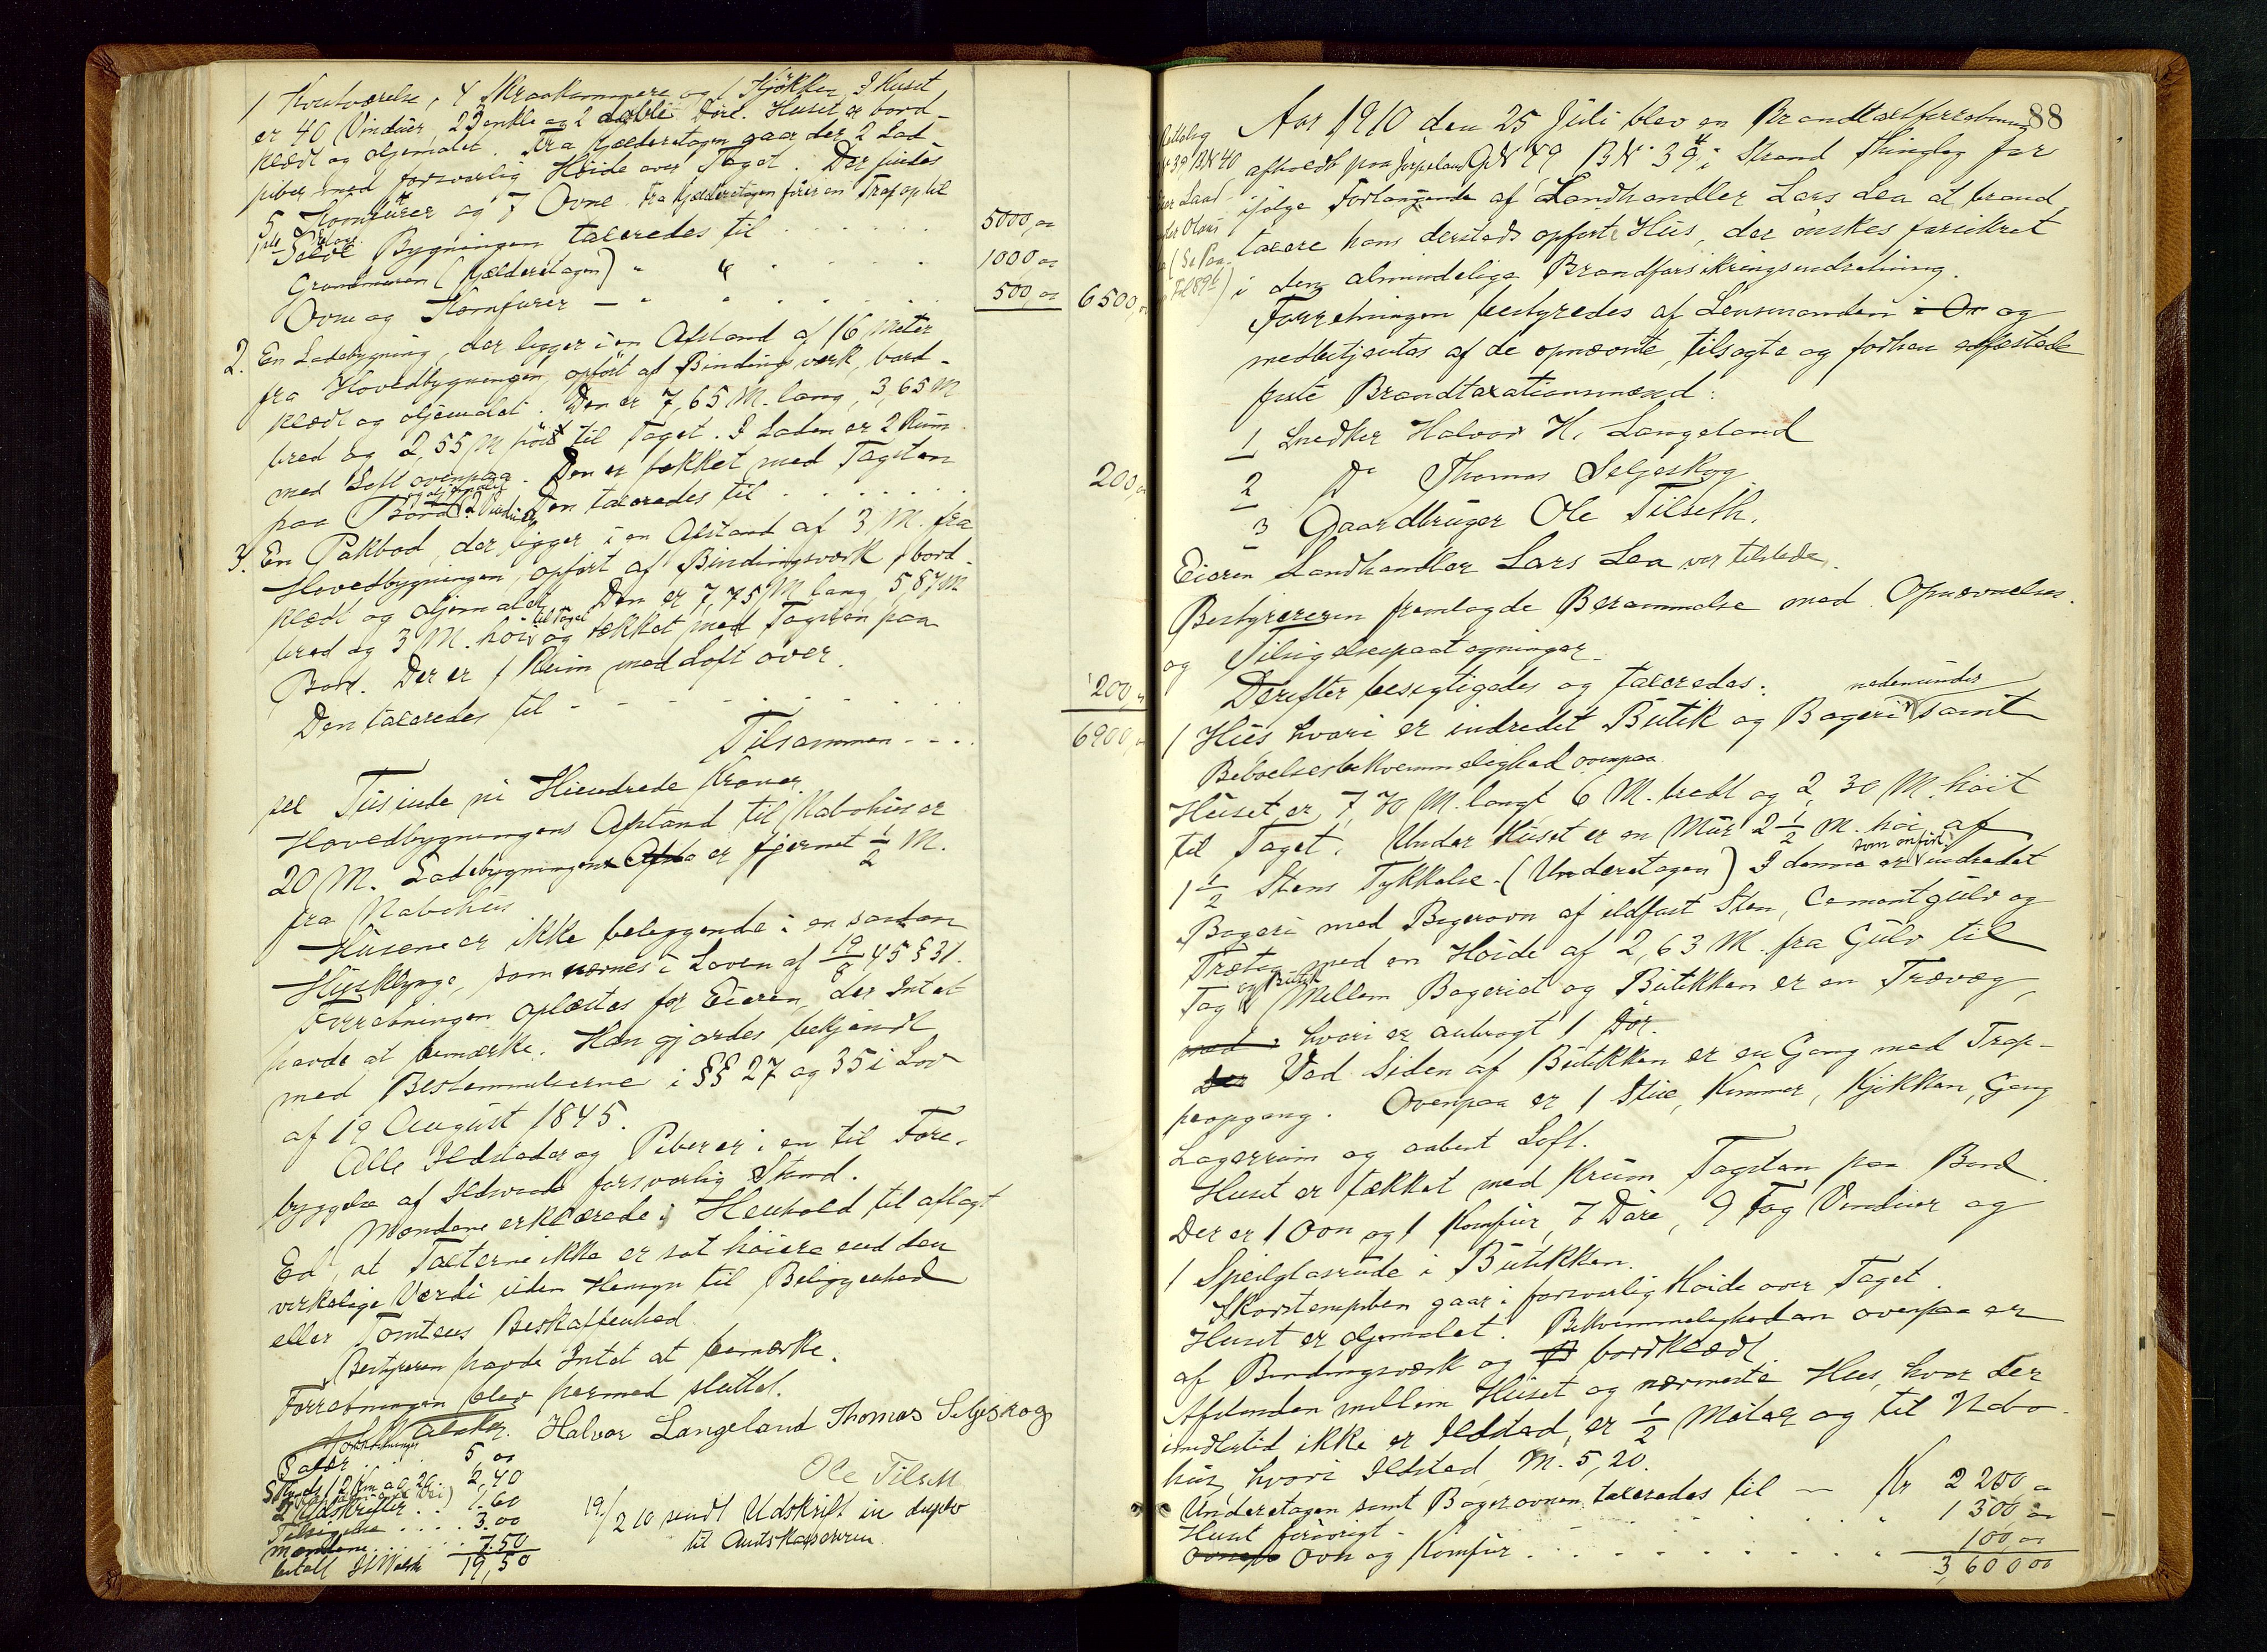 1 Kontværelse, 4 Skraakammere og 1 Kjøkken I Huset
er 40 Vinduer, 2 Denkle og 2 doble Døre. Huset er bord-
klædt og oljemalet. Fra Kjælderetagen gaar der 2 Lad
piber med forsvarlig Høide over Taget. Der findes
5 Komfürer og 7 Ovne. Fra Kjælderetagen fører en Trap op til
1ste Etage.
Selve Bygningen taxeredes til . . . . . . 5000,00
Grundmuren (Kjælderetagen) " " . . . . . 1000 00
Ovne og Komfurer — " " . . . . . 500,00 6500,
2. En Ladebygning, der ligger i en Afstand af 16 Meter
fra Hovedbygningen, opført af Bindingsverk, bord-
klædt og oljemalet. Den er 7,65 M. lang, 3,65 M
bred og 2,55 M høi til Taget. I Laden er 2 Rum
med Loft ovenpaa. Den er tækket med Tagsten
paa Bord. 2 Vinduer Den taxeredes til . . . . . . . 200,
3. En Pakbod, der ligger i en Afstand af 3 M. fra
Hovedbygningen, opført af Bindingsværk, bord-
klædt og oljemalet. Den er 7,75 M lang, 5,87 M
bred og 3 M. høi til Taget og tækket med Tagsten paa
Bord. Der er 1 Rum med Loft over.
Den taxeredes til - - - - . . . . . 200,
Tilsammen - - . . 6900,
sex Tusinde ni Hundrede Kroner.
Hovedbygningens Afstand til Nabohus er
20 M. Ladebygningens Afsta er fjernet ½ M.
fra Nabohus
Husene er ikke beliggende i en saadan
Husklynge, som nævnes i Loven af 19/8 45 § 31.
Forretningen oplæstes for Eieren, der Intet
havde at bemærke. Han gjordes bekjendt
med Bestemmelserne i §§ 27 og 35 i Lov
af 19 August 1845.
Alle Ildsteder og Piber er i en til Fore-
byggelse af Ildsvaade forsvarlig Stand.
Mændene erklærede i Henhold til aflagt
Ed, at Taxterne ikke er sat høiere end den
virkelige Værdi uden Hensyn til Beliggenhed
eller Tomtens Beskaffenhed.
Bestyreren havde Intet at bemærke.
Forretningen blev hermed sluttet.
Halvor Langeland Thomas Seljeskog
Ole Tilseth
Salær . . . 5,00
Skyds 12 Km a 20 2,40
2 Udskrifter . . . 1.60
Tilsigelse . . . . 3.00
Mændene . . . . . 7.50
betalt 19,50
19/2 10 sendt Udskrift in duplo
til Amtskasserern
88
Aar 1910 den 25 Juli blev en Brandtaxtforretning
afholdt paa Jørpeland G. N 49 B N. 39 i Strand Thinglag for
ifølge Forlangende af Landhandler Lars Lea at brand
taxere hans dersteds opførte Hus, der ønskes forsikret
i den almindelige Brandforsikringsindretning.
Forretningen bestyredes af Lensmanden i Or og
medbetjentes af de opnævnte, tilsagte og forhen edfæstede
faste Brandtaxationsmænd:
1 Snedker Halvor H. Langeland
2 Do Thomas Seljeskog
3 Gaardbruger Ole Tilseth.
Eieren Landhandler Lars Lea var tilstede.
Bestyrereren fremlagde Berammelse med Opnævnelses-
og Tilsigelsespaategninger.
Derefter besigtigedes og taxeredes:
1 Hus hvori er indredet Butik og Bageri nedenunder samt
Beboelsesbekvemmelighed ovenpaa.
Huset er 7,70 M. langt 6 M. bredt og 2,30 M. høit
til Taget. Under Huset er en Mur 2½ M. høi af
1½ Stens Tykkelse. (Underetagen) I denne er som anført indredet
Bageri med Bagerovn af ildfast Sten, Cementgulv og
Trætag med en Høide af 2,63 M. fra Gulv til
Tag og Butik Mellem Bageriet og Butikken er en Trævæg,
med hvori er anbragt 1 Dør.
Der Ved Siden af Butikken er en Gang med Trap-
peopgang. Ovenpaa er 1 Stue, Kammer, Kjøkken, Gang
Lagerrum og aabent Loft.
Huset er tækket med Krum Tagsten paa Bord.
Der er 1 Ovn og 1 Komfur, 7 Døre, 9 Fag Vinduer og
1 Speilglasrude i Butikken.
Skorstenspiben gaar i forsvarlig Høide over Taget.
Huset er oljemalet. Bekvemmeligheden ovenpaa er
af Bindingsværk og bordklædt
Afstanden mellem Huset og nærmeste Hus, hvor der
imidlertid ikke er Ildsted, er ½ Meter og til Nabo-
hus, hvori Ildsted, M. 5,20.
Underetagen samt Bagerovnen taxeredes til — Kr 2 200,00
Huset forøvrigt - . . . . . . . . . " 1 300 00
Ovnen Ovn og Komfur . . . . . . . . . " 100,00
3,600 00